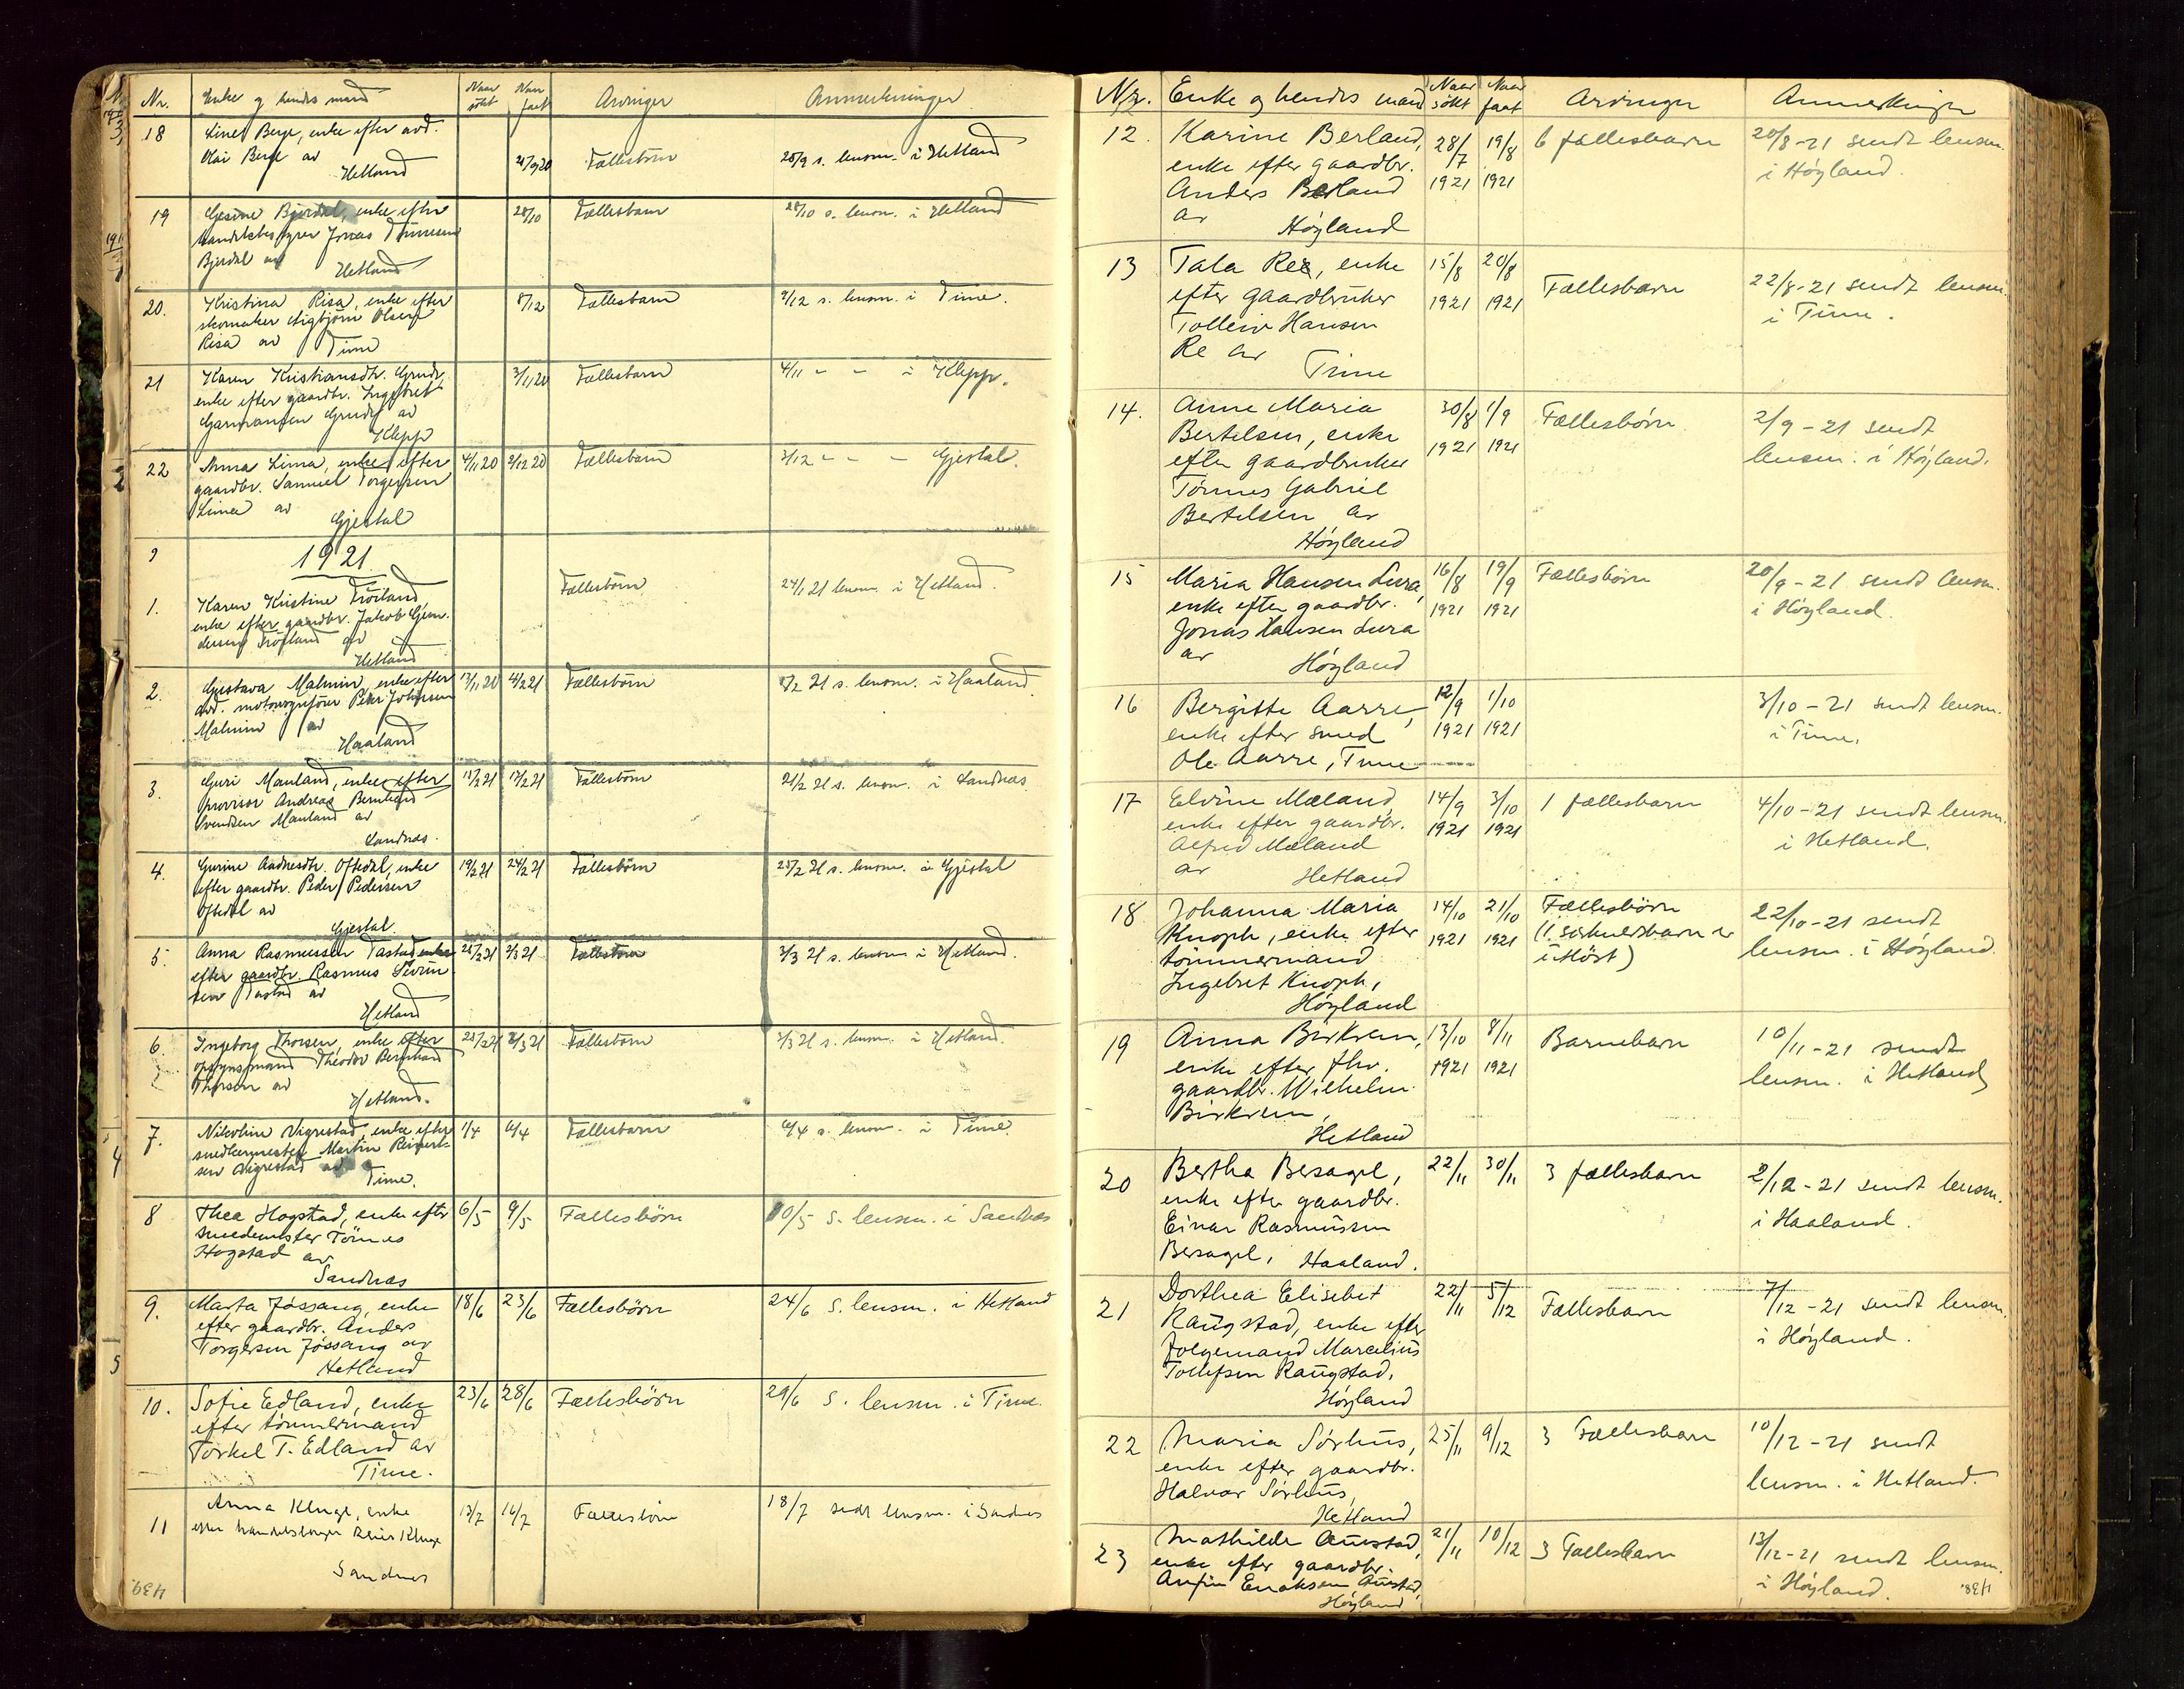 Nr. Enke og hendes mand Naar søkt Naar faat Arvinger Anmerkninger
18 Line Berge, enke efter avd. Olai Berge av Hetland 24/9 20 Fællesbörn 25/9 s. lensm. i Hetland
19 Gesine Bjerdal, enke efter handelsbestyrer Jonas Tønnesen Bjerdal av Hetland 28/10 Fællesbarn 28/10 s. lensm. i Hetland
20. Kristina Risa, enke efter skomaker Sigbjørn Olsen Risa av Time 8/12 Fællesbarn 9/12 s. lensm. i Time.
21 Karen Kristiansdtr. Grude, enke efter gaardbr. Ingebret Garmansen Grude av Klepp 3/11 20 Fællesbarn 4/11 - - i Klepp.
22 Anna Lima, enke efter gaardbr. Samuel Torgersen Lima av Gjestal 4/11 20 2/12 20 Fællesbarn 3/12 - - - Gjestal.
1921
1. Karen Kristine Tröiland, enke efter gaardbr. Jakob Gjerdesen Tröiland av Hetland Fællesbörn 24/1 21 lensm. i Hetland.
2. Gustava Malmin, enke efter avd. motorvognfører Peter Johnsen Malmin av Haaland 13/11 20 4/2 21 Fællesbörn 5/2 21 s. lensm. i Haaland.
3. Guri Mauland, enke efter provisor Andreas Bernhard Svendsen Mauland av Sandnæs. 15/2 21 17/2 21 Fællesbörn 21/2 21 s. lensm. i Sandnæs
4. Gurine Aadnesdtr. Oftedal, enke efter gaardbr. Peder Pedersen Oftedal av Gjestal. 19/2 21 24/2 21 Fællesbörn 25/2 21 s. lensm. i Gjestal
5. Anna Rasmussen Tastad enke efter gaardbr. Rasmus Sivertsen Tastad av Hetland 25/2 21 2/3 21 Fællesbörn 3/3 21 s. lensm. i Hetland.
6. Ingeborg Thorsen, enke efter opsynsmand Theodor Bernhard Thorsen av Hetland. 25/2 21 2/3 21 Fællesbörn 3/3 21 s. lensm. i Hetland.
7. Nikoline Vigrestad, enke efter snedkermester Martin Reinertsen Vigrestad av Time. 1/4 4/4 Fællesbarn 6/4 s. lensm. i Time.
8 Thea Hogstad, enke efter smedemester Tönnes Hogstad av Sandnæs 6/5 9/5 Fællesbörn 10/5 s. lensm. i Sandnæs
9. Marta Jössang, enke efter gaardbr. Anders Torgersen Jössang av Hetland 18/6 23/6 Fællesbörn 24/6 s. lensm. i Hetland
10. Sofie Edland, enke efter tömmermand Torkel T. Edland av Time. 23/6 28/6 Fællesbörn 29/6 s. lensm. i Time.
11 Anna Kluge, enke efter handelsborger Reier Kluge Sandnes 13/7 16/7 Fællesbörn 18/7 sendt lensm. i Sandnes
439.
Nr. Enke og hendes mand Naar søkt Naar faat Arvinger Anmerkninger
12. Karine Berland, enke efter gaardbr. Anders Berland av Höyland 28/7 1921 19/8 1921 6 fællesbarn 20/8-21 sendt lensm. i Höyland.
13 Tala Re, enke efter gaardbruker Tolleiv Hansen Re av Time 15/8 1921 20/8 1921 Fællesbarn 22/8-21 sendt lensm. i Time.
14. Anne Maria Bertelsen, enke efter gaardbruker Tönnes Gabriel Bertelsen av Höyland 30/8 1921 1/9 1921 Fællesbörn 2/9-21 sendt lensm. i Höyland.
15 Maria Hansen Lura, enke efter gaardbr. Jonas Hansen Lura av Höyland 16/8 1921 19/9 1921 Fællesbörn 20/9-21 sendt lensm. i Höyland.
16 Bergitte Aarre, enke efter smed Ole Aarre, Time 12/9 1921 1/10 1921 3/10-21 sendt lensm. i Time.
17 Elvine Mæland, enke efter gaardbr. Alfred Mæland av Hetland 14/9 1921 3/10 1921 1 fællesbarn 4/10-21 sendt lensm. i Hetland.
18 Johanna Maria Knoph, enke efter tömmermand Ingebret Knoph, Höyland 14/10 1921 21/10 1921 Fællesbörn (1 særkulsbarn er utlöst) 22/10-21 sendt lensm. i Höyland.
19 Anna Birkrem, enke efter fhv. gaardbr. Wilhelm Birkrem, Hetland 13/10 1921 8/11 1921 Barnebarn 10/11-21 sendt lensm. i Hetland
20 Bertha Bersagel, enke efter gaardbr. Einar Rasmussen Bersagel, Haaland. 22/11 30/11 3 fællesbarn 2/12-21 sendt lensm. i Haaland.
21 Dorthea Elisebet Raugstad, enke efter følgemand Marcelius Tollefsen Raugstad, Höyland 22/11 5/12 Fællesbarn 7/12-21 sendt lensm. i Höyland.
22 Maria Sörhus, enke efter gaardbr. Halvor Sörhus, Hetland 25/11 9/12 3 Fællesbarn 10/12-21 sendt lensm. i Hetland.
23 Mathilde Austad, enke efter gaardbr. Anfin Enoksen Austad, Höyland 21/11 10/12 3 Fællesbarn 13/12-21 sendt lensm. i Höyland.
438.